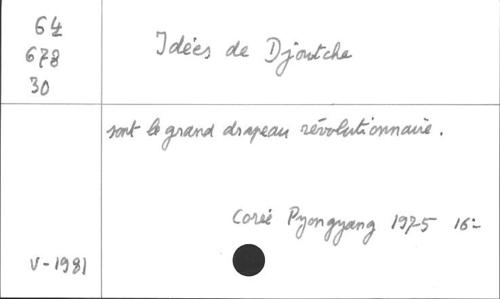 64
678
30
Idées de Djoutche
sont le grand drapeau révolutionnaire.
Corée Pyongyang 1975 16º
V-1981